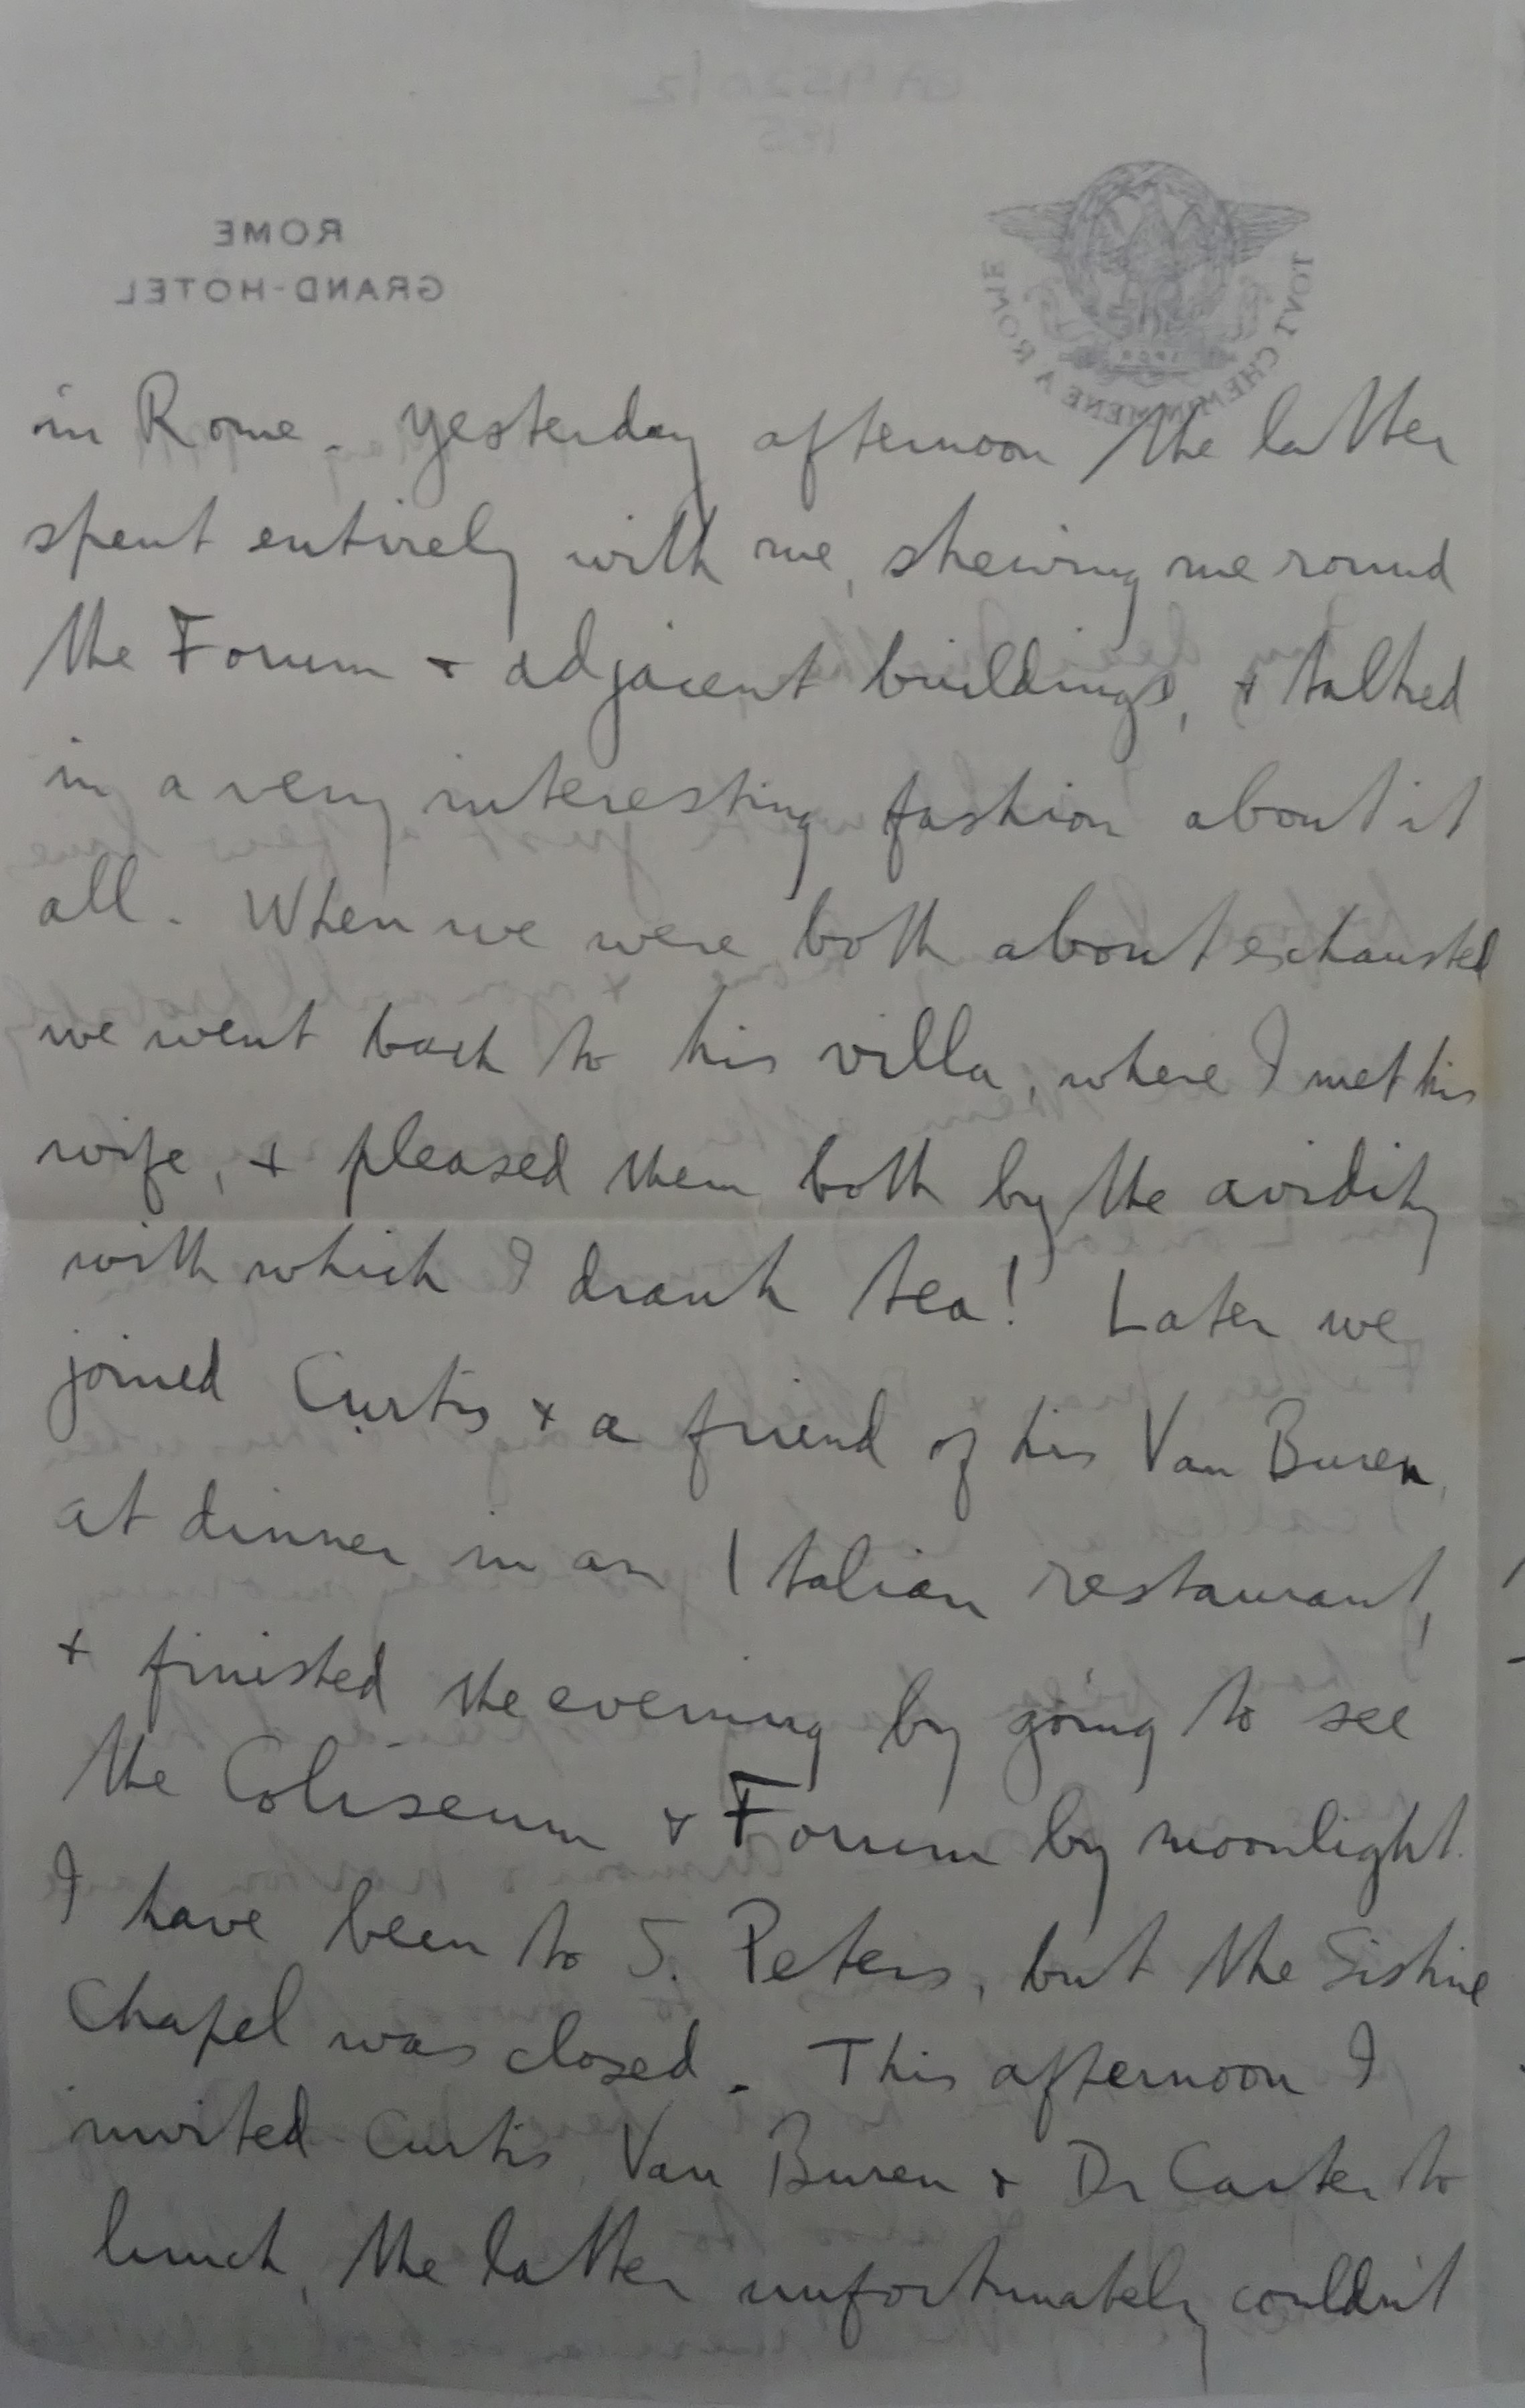 ROME
GRAND-HOTEL
TOVT CHEMIN MENE A ROME
in Rome. Yesterday afternoon the latter
spent entirely with me, shewing me round
the Forum + adjacent buildings, + talked
in a very interesting fashion about it
all. When we were both about exhausted
we went back to his villa, where I met his
wife, + pleased them both by the avidity
with which I drank tea! Later we
joined Curtis + a friend of his Van Buren,
at dinner in an Italian restaurant,
+ finished the evening by going to see
the Coliseum + Forum by moonlight.
I have been to S. Peters, but the Sistine
Chapel was closed. This afternoon I
invited Curtis, Van Buren + Dr Carter to
lunch, the latter unfortunately couldn't